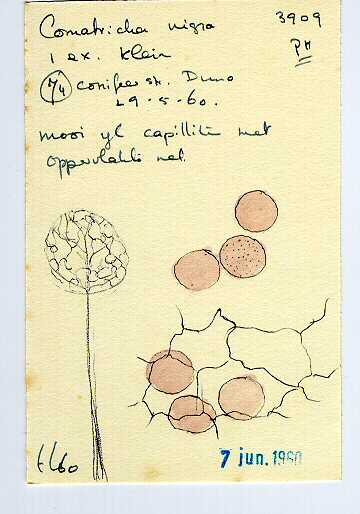 Comatricha nigra 3909
1 ex. klein PH
7/4 conifeer st. Duno
29-5-60.
mooi yl capillitie met
oppervlakte net.
7 jun. 1960